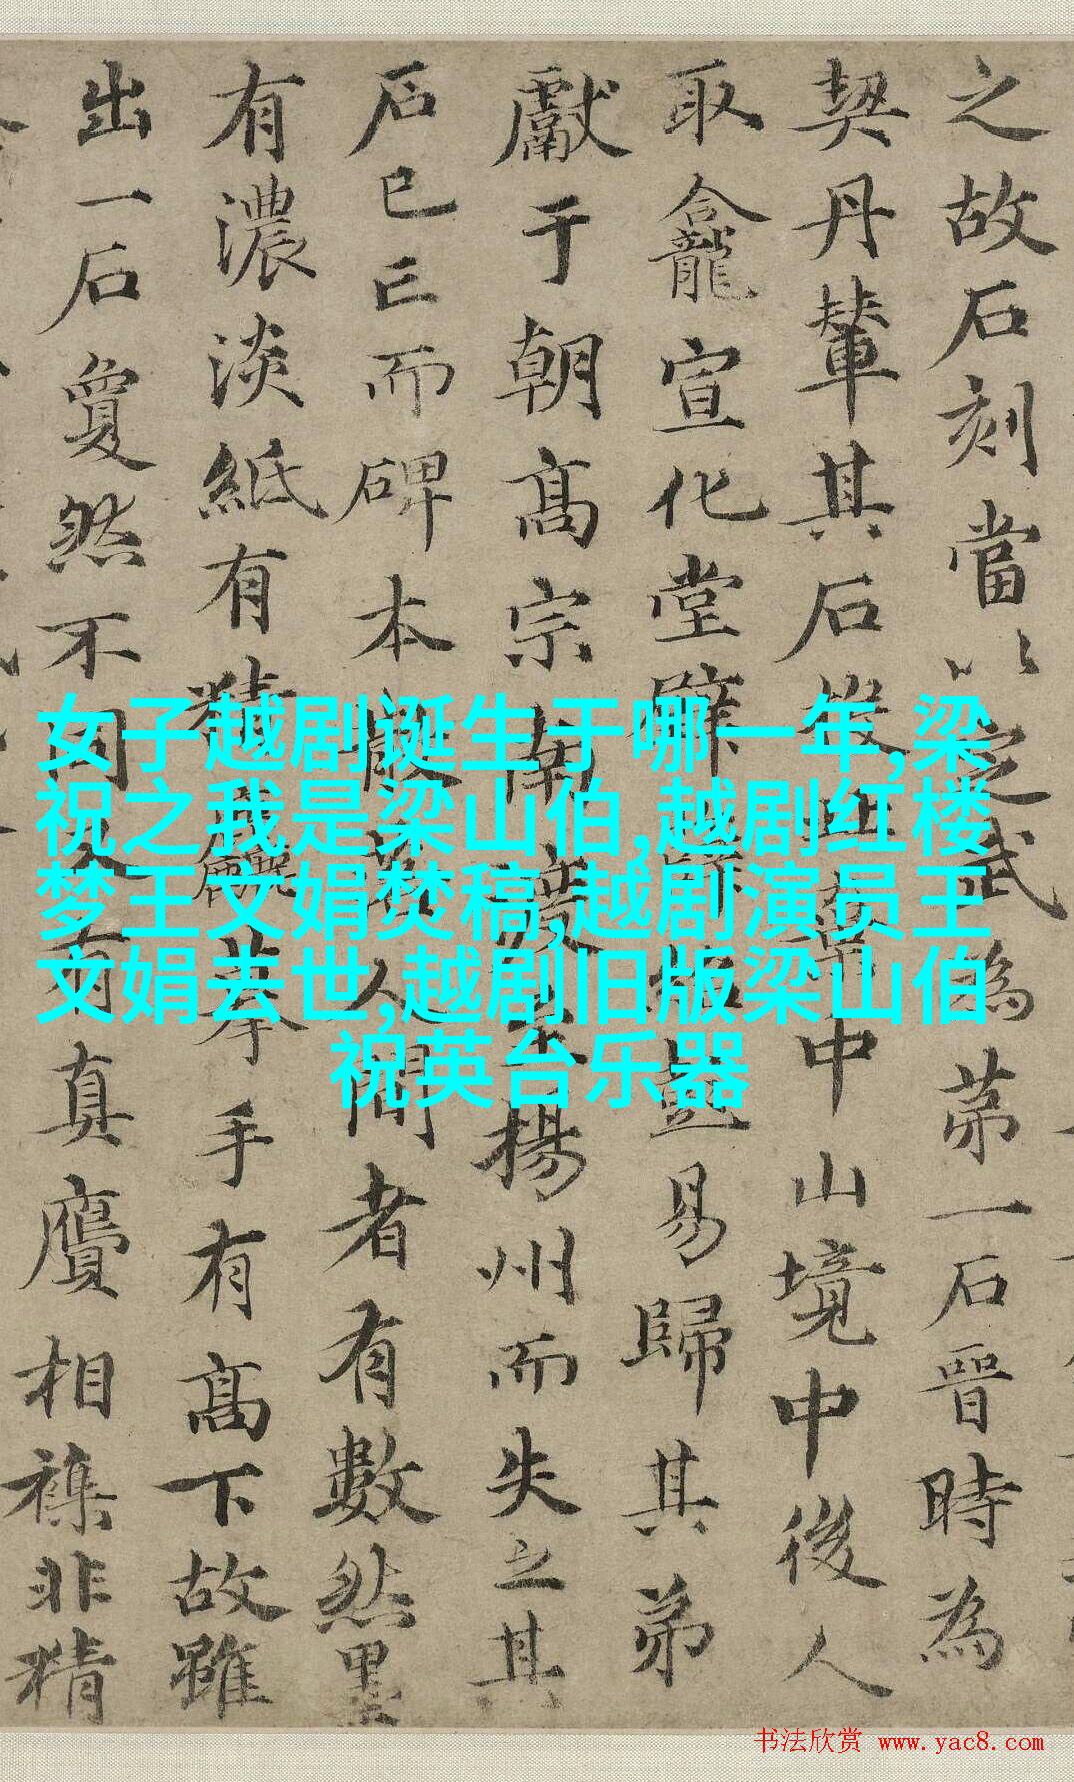 之故石刻當以定武為苐一石晉時為
契丹輦其石後中山境中後人
取龕宣化堂壁易歸其弟
獻于朝高宗南渡至揚州而失之其
石已亡而碑本散落人間者有數然墨
有濃淡紙有精麤摹手有高下故雖
出一石夐然不同又有真贗相襍非精
女子越剧诞生于哪一年,梁
祝之我是梁山伯,越剧红楼
梦王文娟焚稿,越剧演员王
文娟去世,越剧旧版梁山伯
祝英台乐器
书法欣赏 www.yac8.com